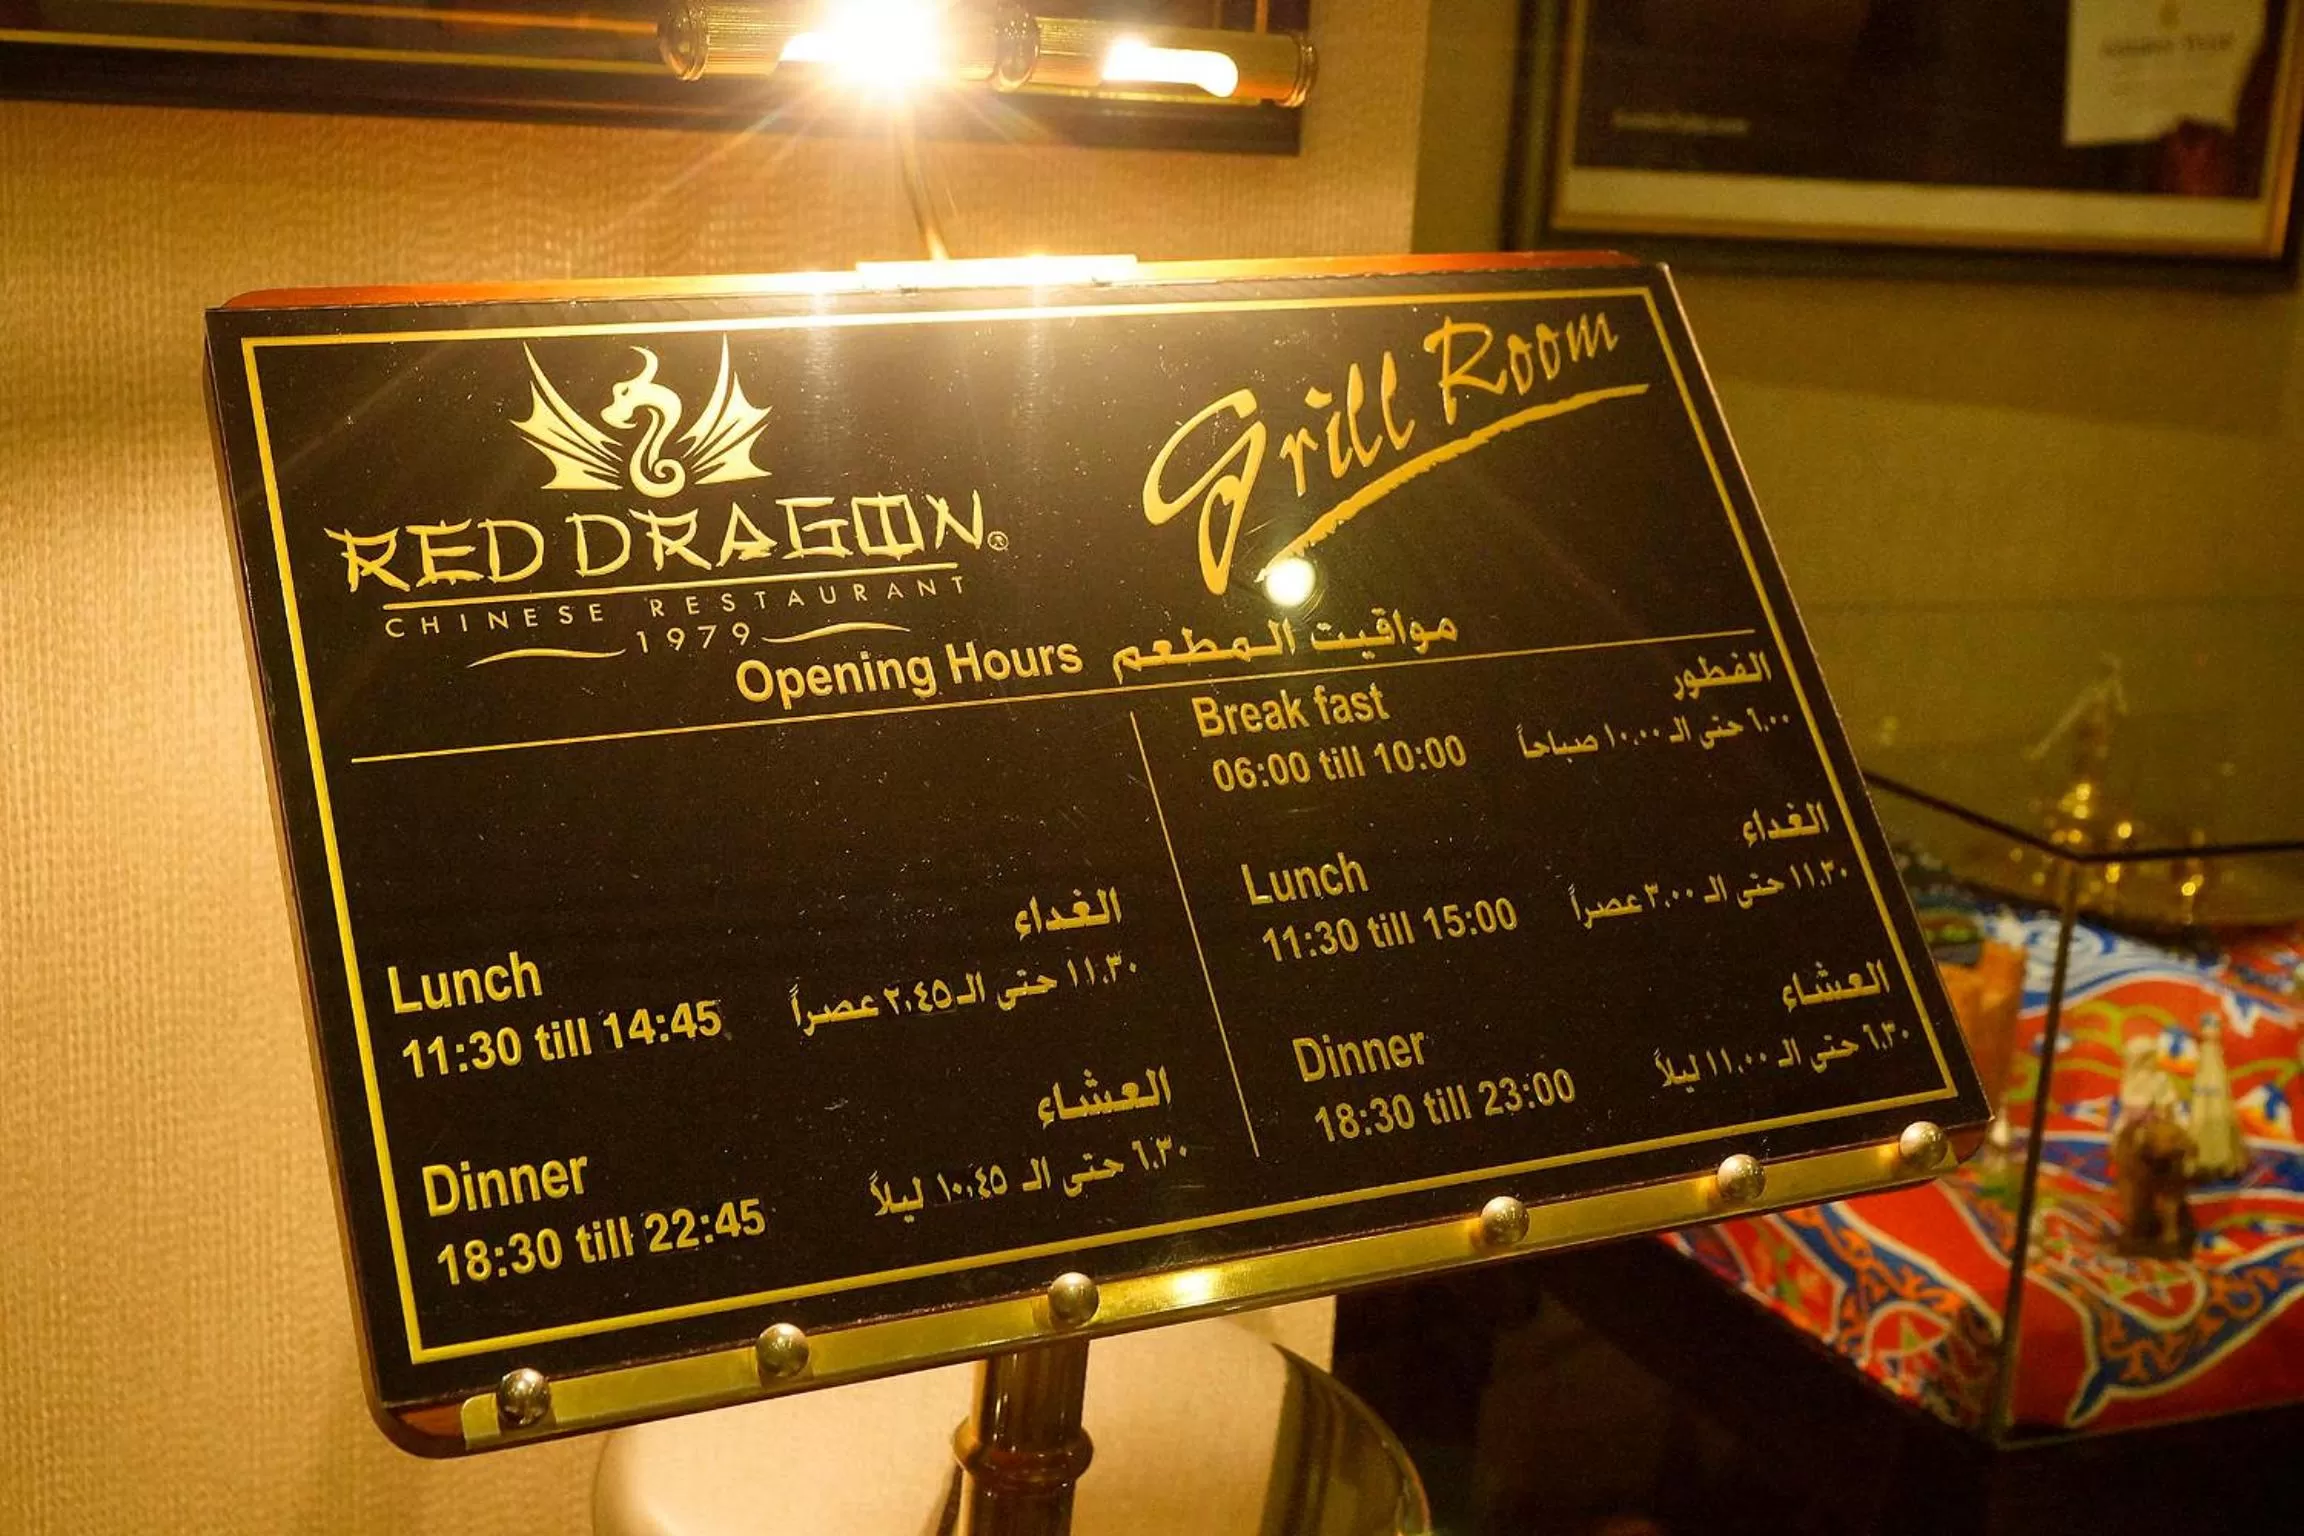 RED DRAGON®
CHINESE RESTAURANT
1979
Grill Room
Opening Hours مواقيت المطعم
Lunch الغداء
11:30 till 14:45 ١١.٣٠ حتى الـ ٢.٤٥ عصراً
Dinner العشاء
18:30 till 22:45 ٦.٣٠ حتى الـ ١٠.٤٥ ليلاً
Break fast الفطور
06:00 till 10:00 ٦.٠٠ حتى الـ ١٠.٠٠ صباحاً
Lunch الغداء
11:30 till 15:00 ١١.٣٠ حتى الـ ٣.٠٠ عصراً
Dinner العشاء
18:30 till 23:00 ٦.٣٠ حتى الـ ١١.٠٠ ليلاً